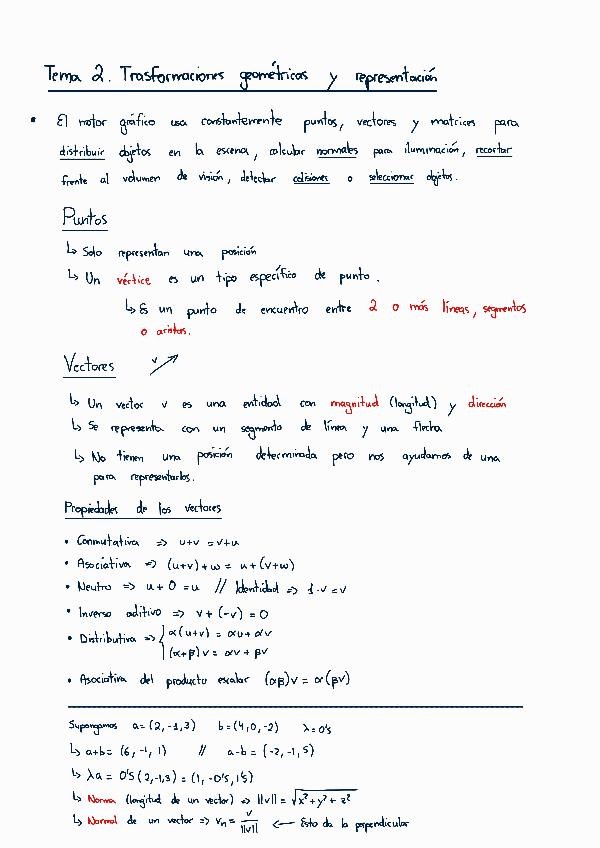 Tema 2. Trasformaciones geométricas y representación
• El motor gráfico usa constantemente puntos, vectores y matrices para
distribuir objetos en la escena, calcular normales para iluminación, recortar
frente al volumen de visión, detectar colisiones o seleccionar objetos.
Puntos
↳ Solo representan una posición
↳ Un vértice es un tipo específico de punto.
↳ Es un punto de encuentro entre 2 o más líneas, segmentos
o aristas.
Vectores v
↳ Un vector v es una entidad con magnitud (longitud) y dirección
↳ Se representa con un segmento de línea y una flecha
↳ No tienen una posición determinada pero nos ayudamos de una
para representarlos.
Propiedades de los vectores
• Conmutativa => u+v = v+u
• Asociativa => (u+v)+w = u+(v+w)
• Neutro => u + 0 = u // Identidad => 1·v = v
• Inverso aditivo => v + (-v) = 0
• Distributiva => { α(u+v) = αu + αv
(α+β)v = αv + βv
• Asociativa del producto escalar (αβ)v = α(βv)
Supongamos a=(2,-1,3) b=(4,0,-2) λ=0'5
↳ a+b = (6,-1,1) // a-b = (-2,-1,5)
↳ λa = 0'5(2,-1,3) = (1,-0'5,1'5)
↳ Norma (longitud de un vector) => ||v|| = √x²+y²+z²
↳ Normal de un vector => vₙ = v/||v|| <— Esto da la perpendicular